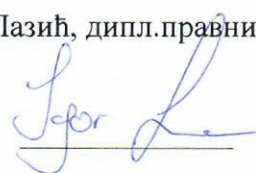 Лазић, дипл.правни
Igor L